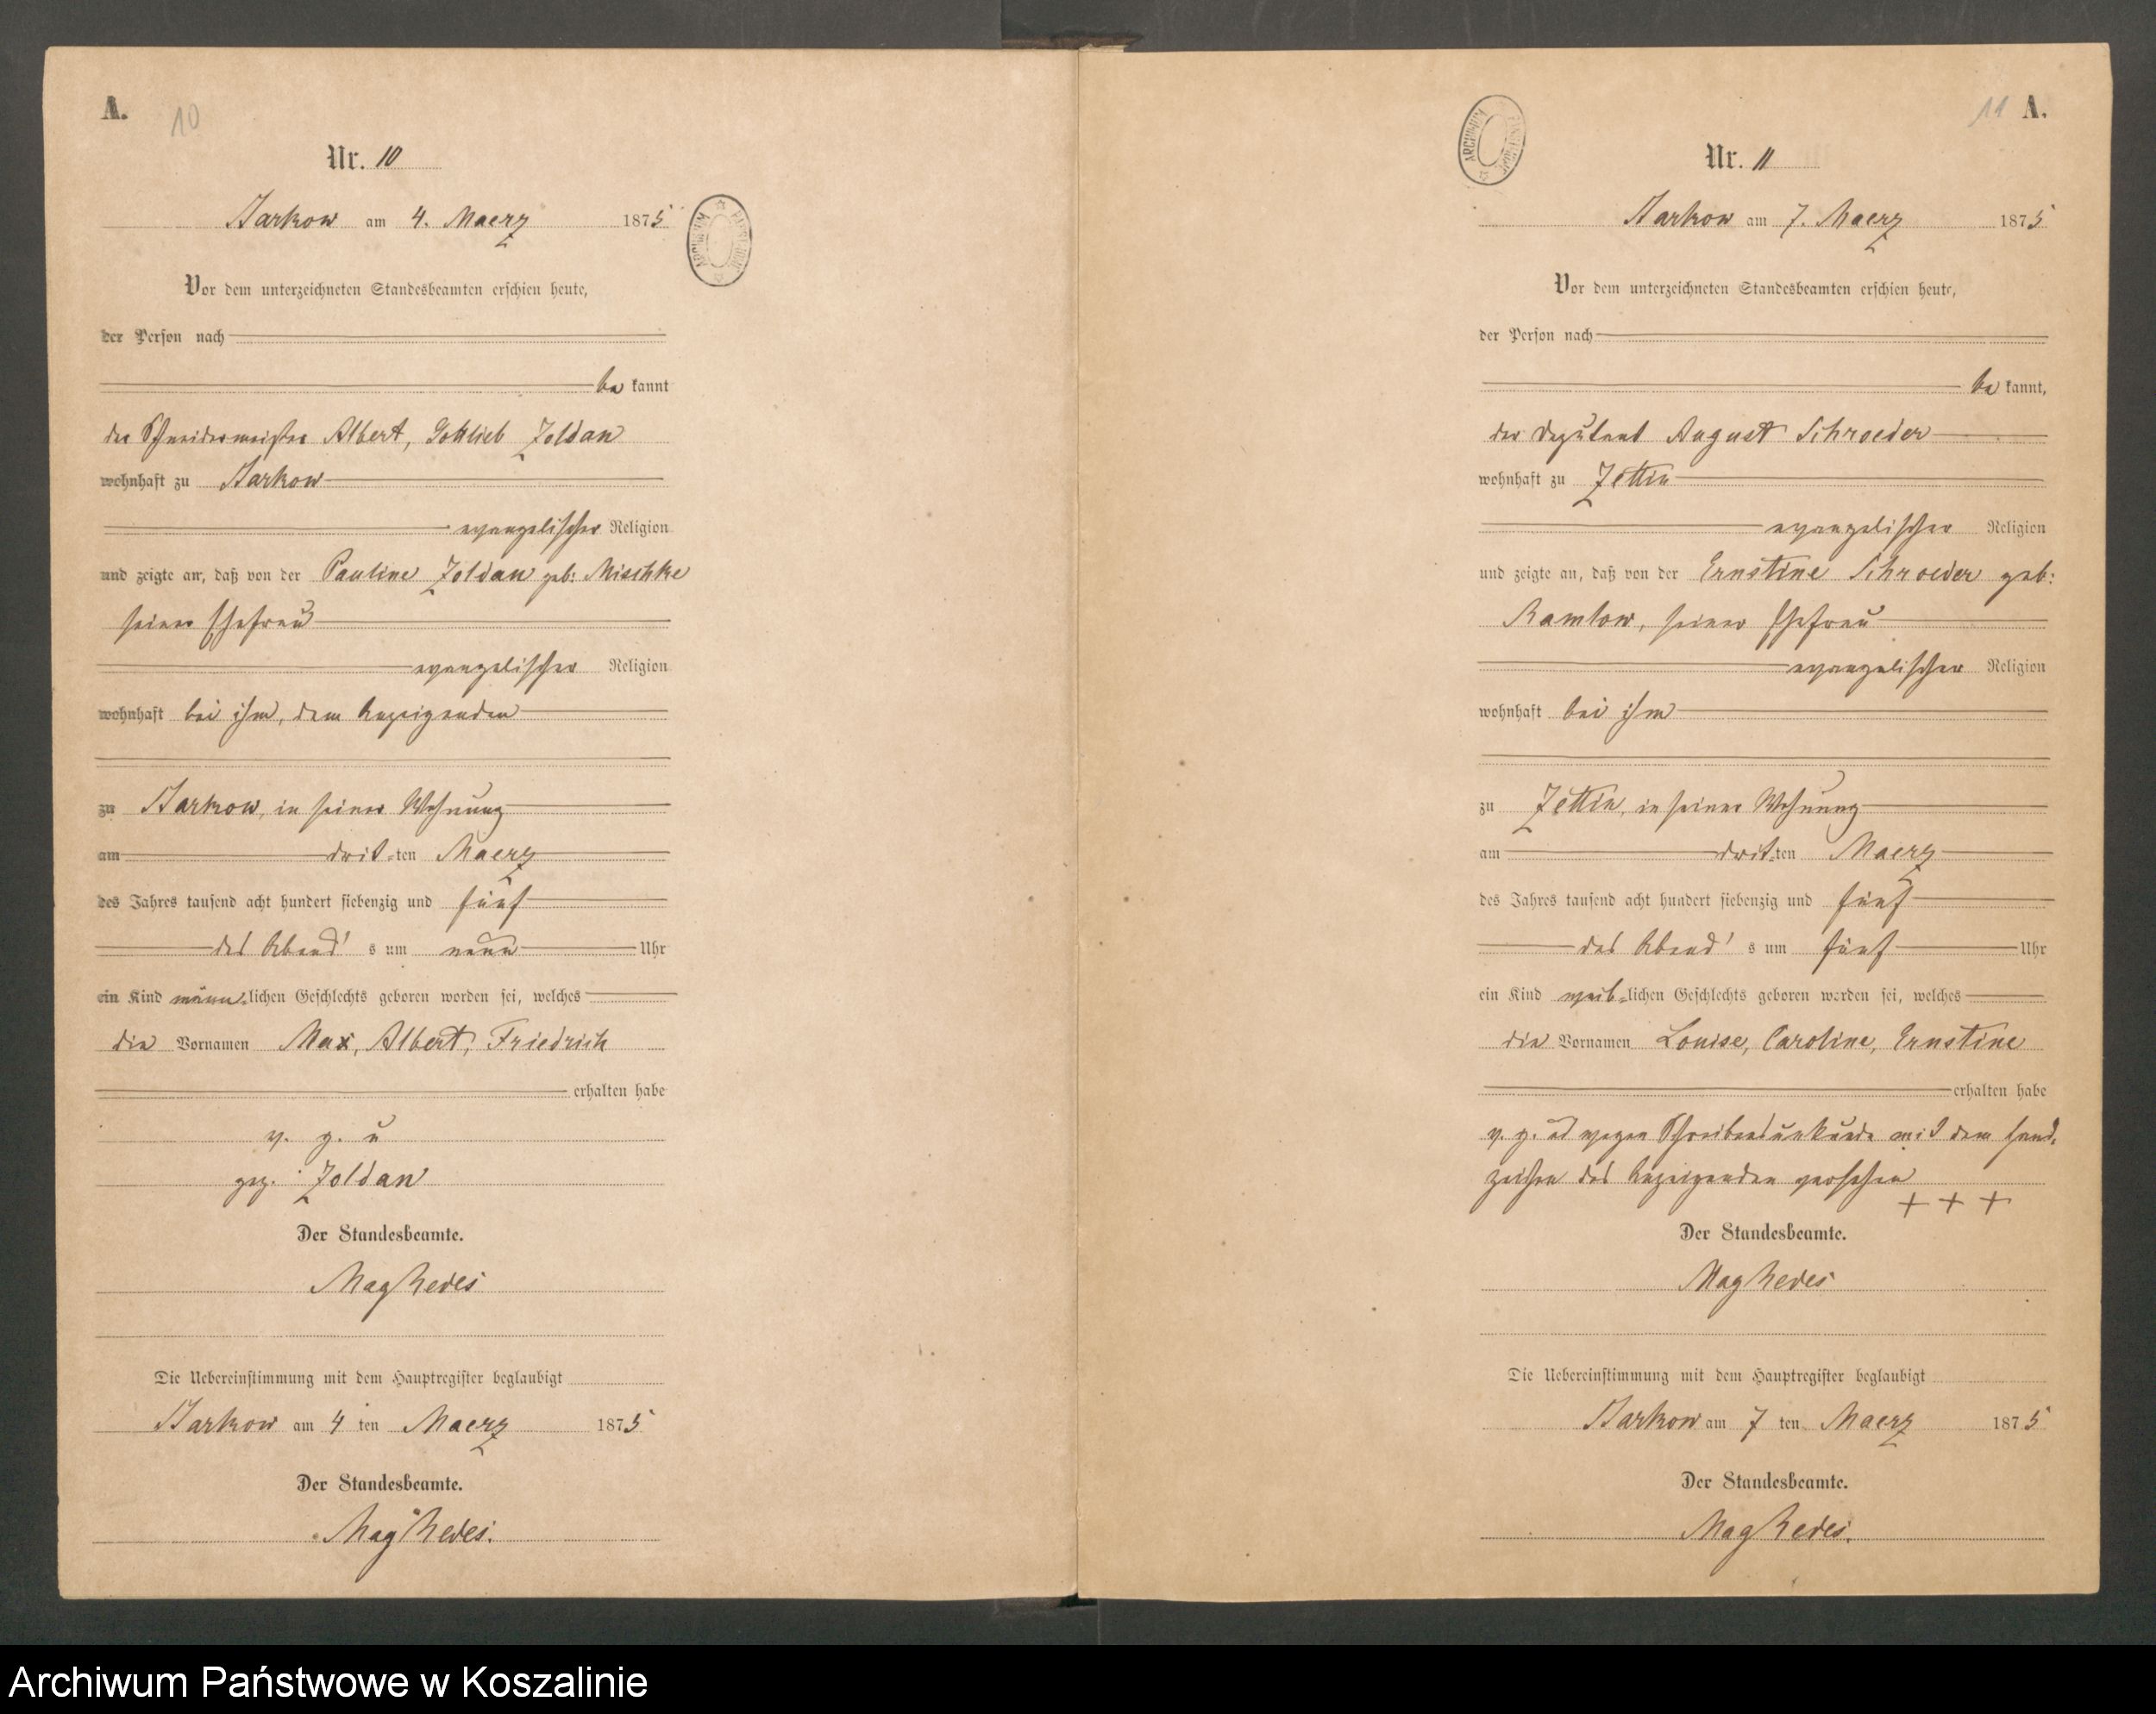 A.
10
Nr. 10
Starkow am 4. Maerz 1875
Vor dem unterzeichneten Standesbeamten erschien heute,
der Person nach
be kannt
der Schneidermeister Albert, Gottlieb Zoldan
wohnhaft zu Starkow
evangelischer Religion
und zeigte an, daß von der Pauline Zoldan geb: Mischke
seiner Ehefrau
evangelischer Religion
wohnhaft bei ihm, dem Anzeigenden
zu Starkow, in seiner Wohnung
am drit-ten Maerz
des Jahres tausend acht hundert siebenzig und fünf
des Abend's um neun Uhr
ein Kind männ-lichen Geschlechts geboren worden sei, welches
die Vornamen Max, Albert, Friedrich
erhalten habe
v. g. u
gez. Zoldan
Der Standesbeamte.
Die Uebereinstimmung mit dem Hauptregister beglaubigt
Starkow am 4 ten Maerz 1875
Der Standesbeamte.
11 A.
ARCHIWUM
Nr. 11
Starkow am 7. Maerz 1875
Vor dem unterzeichneten Standesbeamten erschien heute,
der Person nach
be kannt,
der Deputant August Schroeder
wohnhaft zu Zettin
evangelischer Religion
und zeigte an, daß von der Ernstine Schroeder geb:
Ramlow, seiner Ehefrau
evangelischer Religion
wohnhaft bei ihm
zu Zettin, in seiner Wohnung
am drit-ten Maerz
des Jahres tausend acht hundert siebenzig und fünf
des Abend's um fünf Uhr
ein Kind weib-lichen Geschlechts geboren worden sei, welches
die Vornamen Louise, Caroline, Ernstine
erhalten habe
v. g. ud wegen Schreibensunkunde mit dem Hand-
zeichen des Anzeigenden versehen
+ + +
Der Standesbeamte.
Die Uebereinstimmung mit dem Hauptregister beglaubigt
Starkow am 7 ten Maerz 1875
Der Standesbeamte.
Archiwum Państwowe w Koszalinie